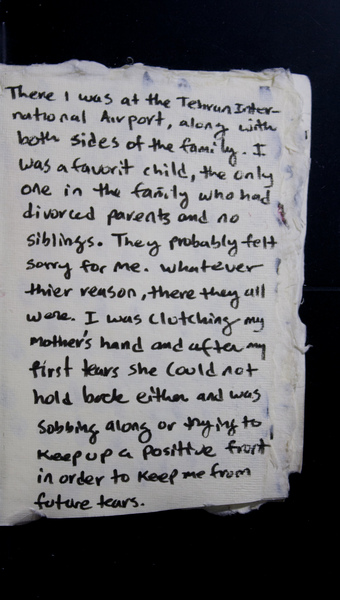 There I was at the Tehran Inter-
national Airport, along with
both sides of the family. I
was a favorit child, the only
one in the family who had
divorced parents and no
siblings. They probably felt
sorry for me. whatever
thier reason, there they all
were. I was clutching my
mother's hand, and after my
first tears she could not
hold back either and was
sobbing along or trying to
keep up a positive front
in order to keep me from
future tears.